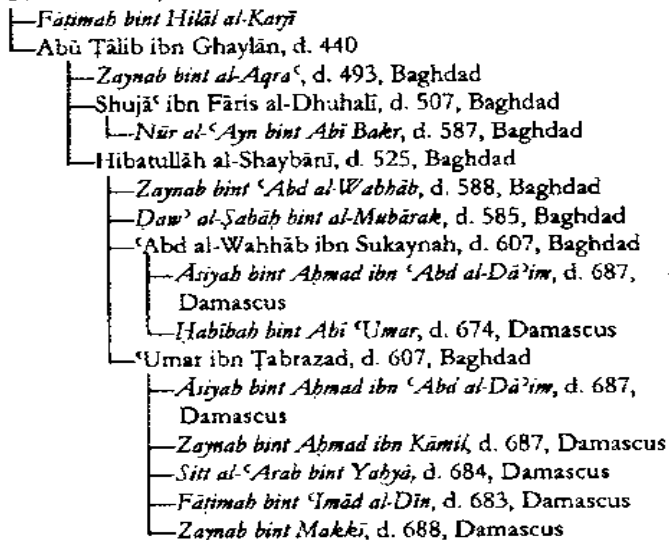 Fāṭimah bint Hilāl al-Karjī
Abū Ṭālib ibn Ghaylān, d. 440
Zaynab bint al-Aqraʿ, d. 493, Baghdad
Shujāʿ ibn Fāris al-Dhuhalī, d. 507, Baghdad
Nūr al-ʿAyn bint Abī Bakr, d. 587, Baghdad
Hibatullāh al-Shaybānī, d. 525, Baghdad
Zaynab bint ʿAbd al-Wahhāb, d. 588, Baghdad
Ḍawʾ al-Ṣabāḥ bint al-Mubārak, d. 585, Baghdad
ʿAbd al-Wahhāb ibn Sukaynah, d. 607, Baghdad
Āsiyah bint Aḥmad ibn ʿAbd al-Dāʾim, d. 687,
Damascus
Ḥabībah bint Abī ʿUmar, d. 674, Damascus
ʿUmar ibn Ṭabrazad, d. 607, Baghdad
Āsiyah bint Aḥmad ibn ʿAbd al-Dāʾim, d. 687,
Damascus
Zaynab bint Aḥmad ibn Kāmil, d. 687, Damascus
Sitt al-ʿArab bint Yaḥyā, d. 684, Damascus
Fāṭimah bint ʿImād al-Dīn, d. 683, Damascus
Zaynab bint Makkī, d. 688, Damascus